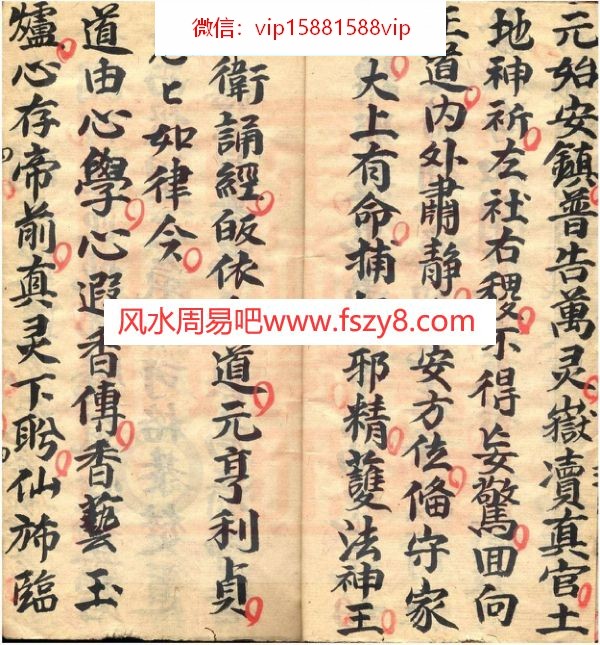 微信：vip15881588vip
风水周易吧www.fszy8.com
元始安鎮普告萬灵嶽瀆真官土
地神祈左社右稷不得妄驚回向
道内外肅静安方位俻守家
大上有命捕邪精護法神王
衛誦經皈依道元亨利貞
匕如律令
道由心學心遐香傳香藝玉
爐心存帝前真灵下盻仙斾臨